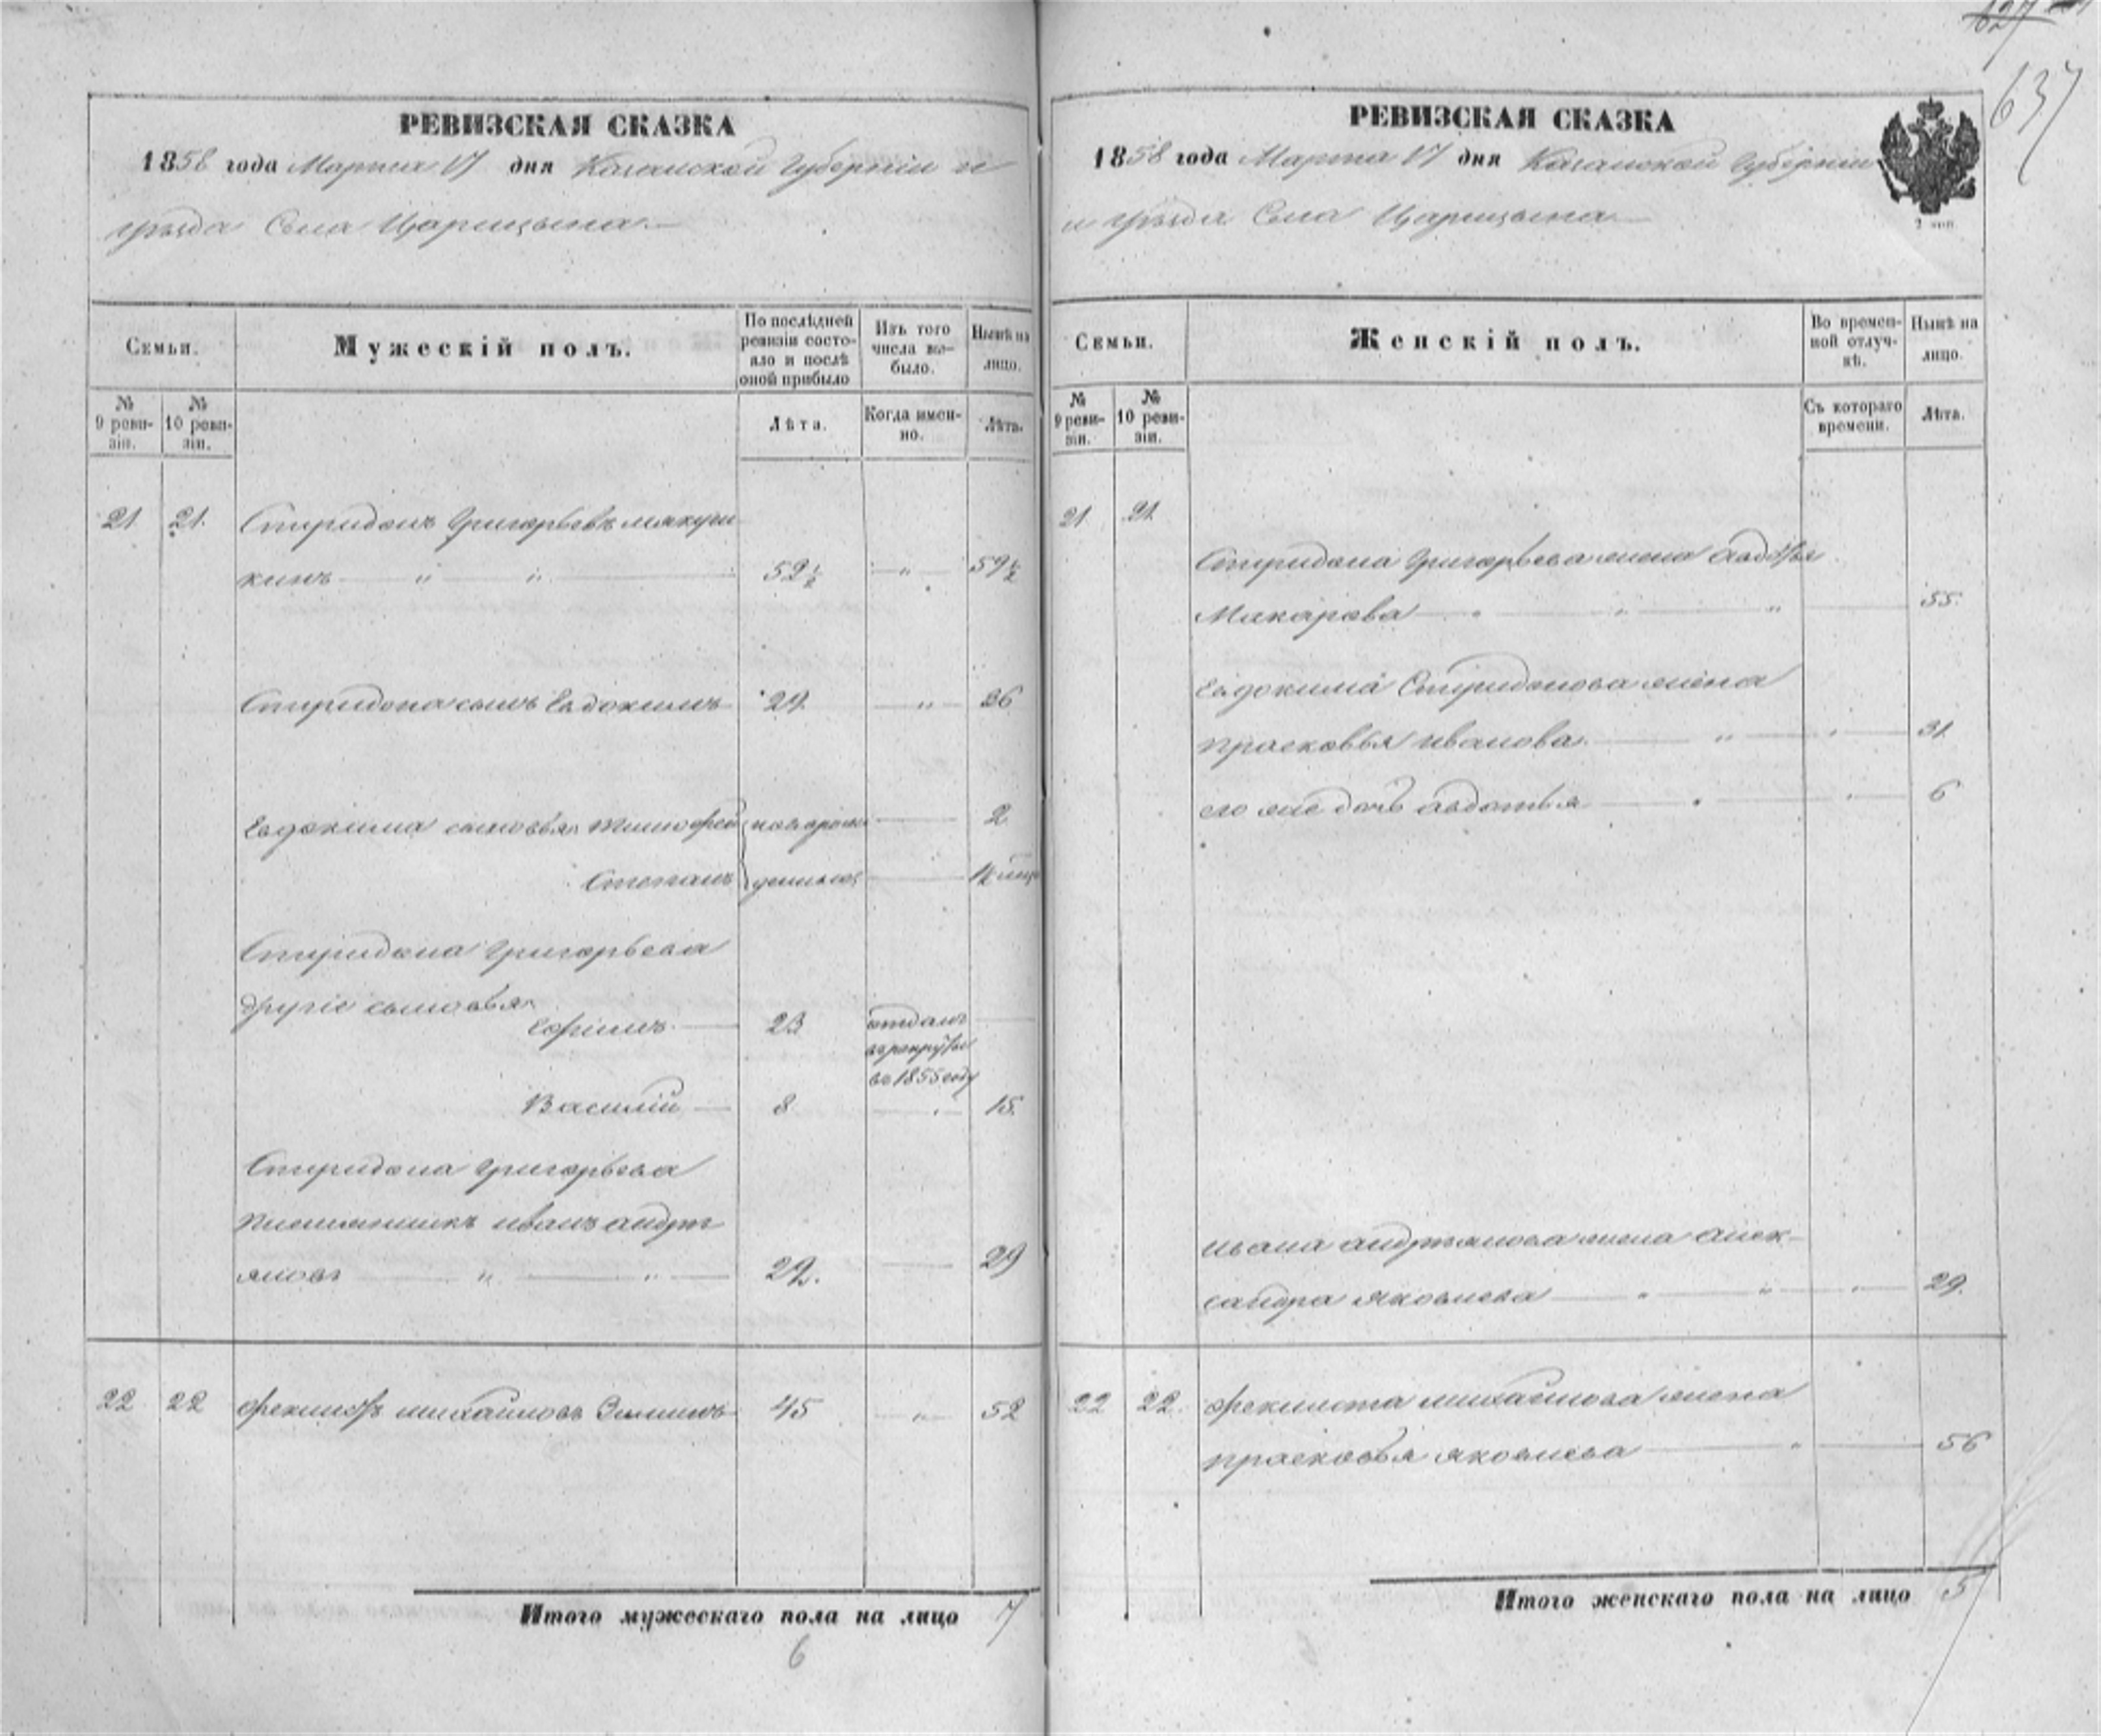 627
637
РЕВИЗСКАЯ СКАЗКА
1858 года Марта 17 дня Казанской Губерніи и
уѣзда Села Царицына
Семьи.
Мужескій полъ.
По послѣдней ревизіи состояло и послѣ оной прибыло
Изъ того числа выбыло.
Нынѣ на лицо.
№ 9 ревизіи.
№ 10 ревизіи.
Лѣта.
Когда именно.
Лѣта.
21 21. Спиридонъ Григорьевъ
кинъ " " 52½ " 59½
Спиридона сынъ Евдокимъ 29 " 36
Евдокима сыновья Тимофей новорож 2
Степанъ денные
Спиридона Григорьева
другіе сыновья
Ефимъ 23 отданъ
в рекруты
в 1855 году
Василій 8 15.
Спиридона Григорьева
племянникъ иванъ андрі
яновъ " " 22. 29
22 22 феклистъ михайловъ Зиминъ 45 " 52
Итого мужескаго пола на лицо 7
6
РЕВИЗСКАЯ СКАЗКА
1858 года Марта 17 дня Казанской Губерніи
и уѣзда Села Царицына
2 коп
Семьи.
Женскій полъ.
Во временной отлучкѣ.
Нынѣ на лицо.
№ 9 ревизіи.
№ 10 ревизіи.
Съ котораго времени.
Лѣта.
21 21
Спиридона Григорьева жена Авдотья
Макарова " " " 55.
Евдокима Спиридонова жена
прасковья иванова " " 31.
его же дочь авдотья " " 6
ивана андріянова жена алек-
сандра яковлева " " " 29.
22 22. феклиста михайлова жена
прасковья яковлева " 56
Итого женскаго пола на лицо 5